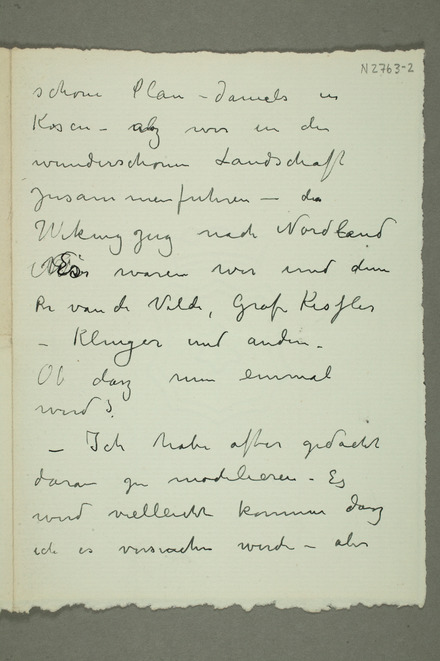 N2763-2
schönen Plan – damals in
Kösen – als wir in der
wunderschönen Landschaft
zusammenfuhren – den
Wikingzug nach Nordland
Es waren wir und dann
Pr van de Velde, Graf Kessler
– Klinger und andere.
Ob das nun einmal
wird?
– Ich habe öfter gedacht
daran zu modelieren. Es
wird vielleicht kommen dass
ich es versuchen werde – aber